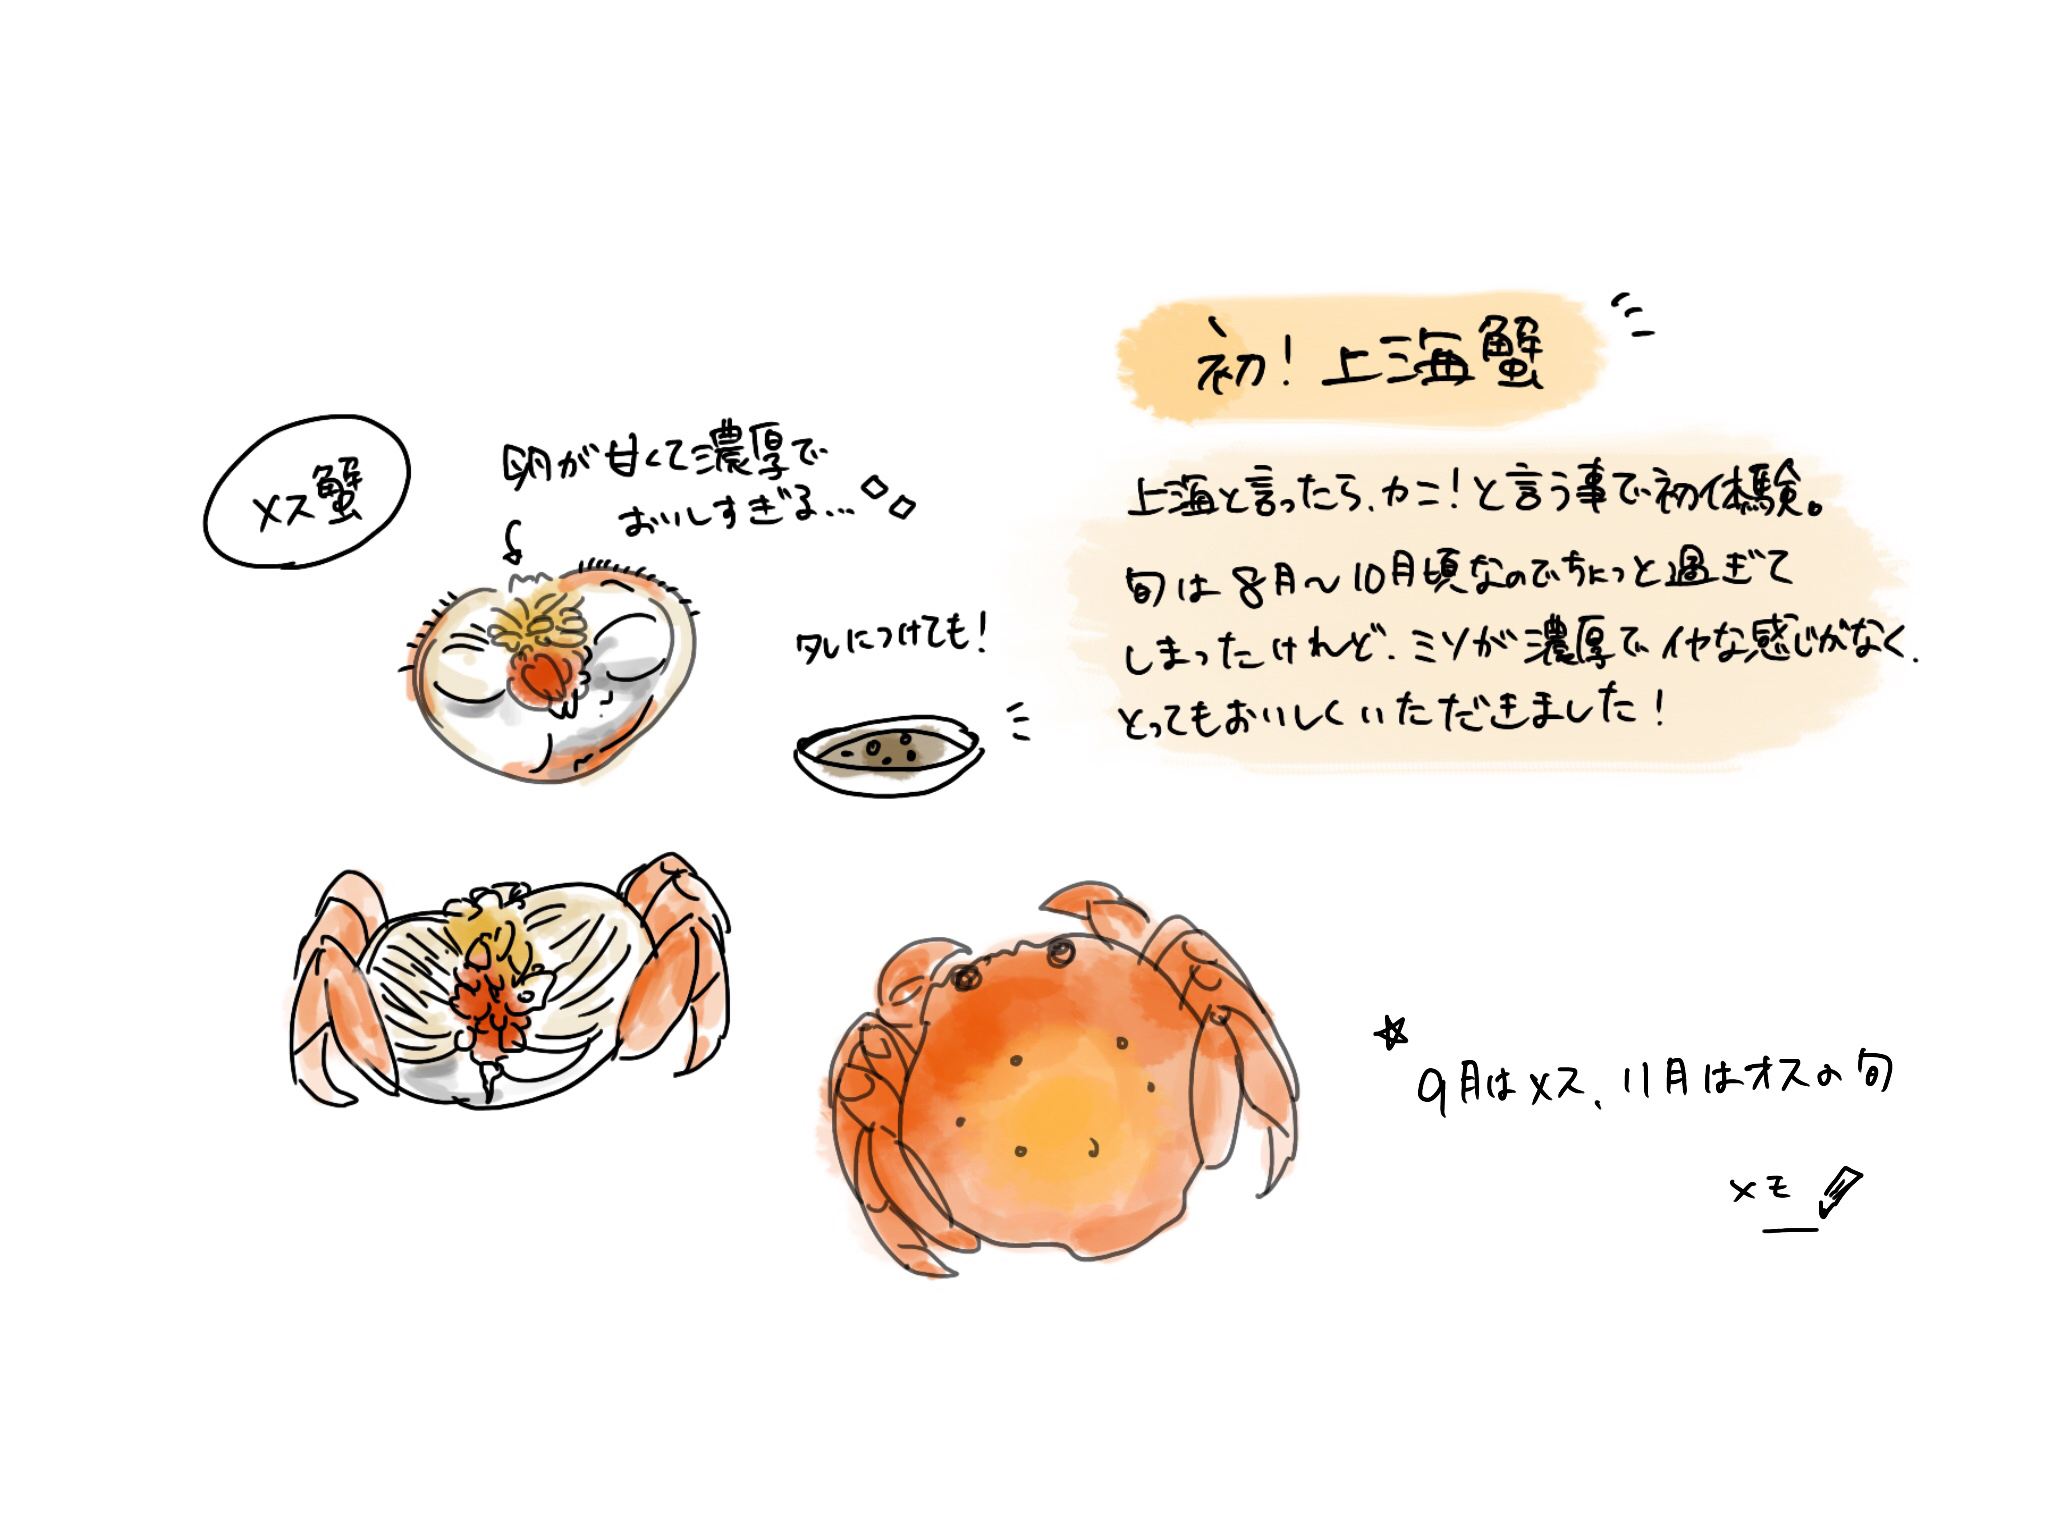 初!上海蟹
上海と言ったら、カニ!と言う事で初体験。
旬は8月〜10月頃なのでちょっと過ぎて
しまったけれど、ミソが濃厚でイヤな感じがなく、
とってもおいしくいただきました!
メス蟹
卵が甘くて濃厚で
おいしすぎる...
タレにつけても!
☆
9月はメス、11月はオスの旬
メモ